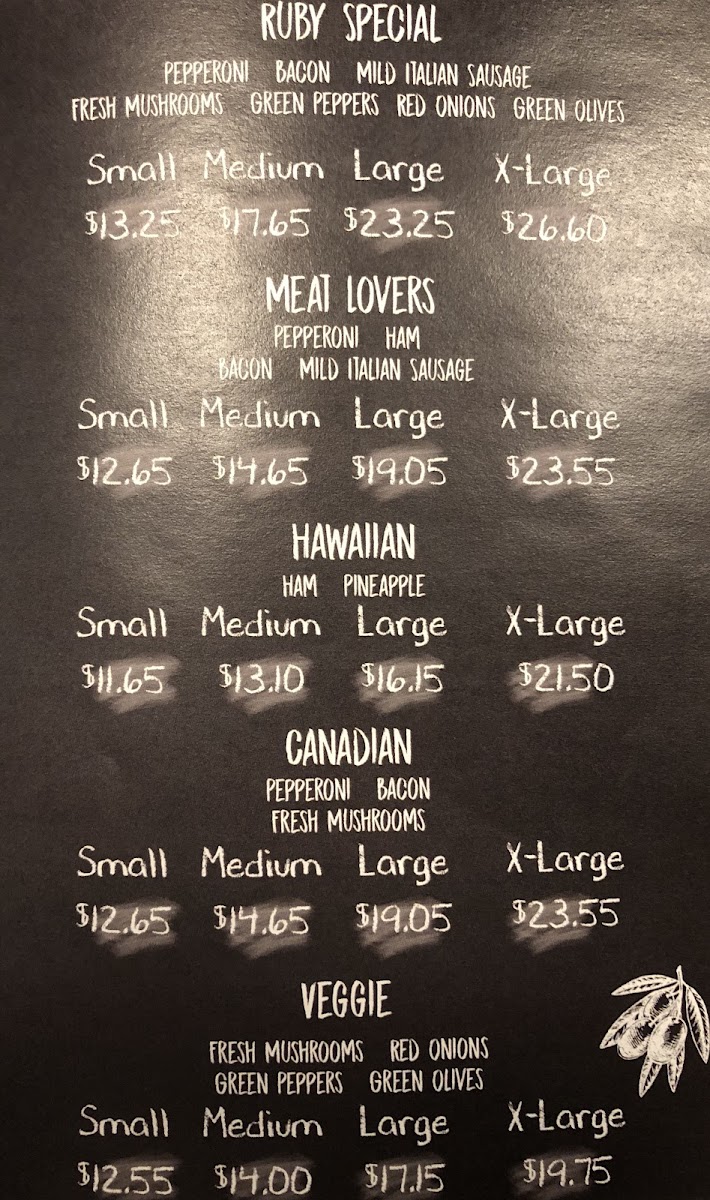 RUBY SPECIAL
PEPPERONI BACON MILD ITALIAN SAUSAGE
FRESH MUSHROOMS GREEN PEPPERS RED ONIONS GREEN OLIVES
Small Medium Large X-Large
$13.25 $17.65 $23.25 $26.60
MEAT LOVERS
PEPPERONI HAM
BACON MILD ITALIAN SAUSAGE
Small Medium Large X-Large
$12.65 $14.65 $19.05 $23.55
HAWAIIAN
HAM PINEAPPLE
Small Medium Large X-Large
$11.65 $13.10 $16.15 $21.50
CANADIAN
PEPPERONI BACON
FRESH MUSHROOMS
Small Medium Large X-Large
$12.65 $14.65 $19.05 $23.55
VEGGIE
FRESH MUSHROOMS RED ONIONS
GREEN PEPPERS GREEN OLIVES
Small Medium Large X-Large
$12.55 $14.00 $17.15 $19.75